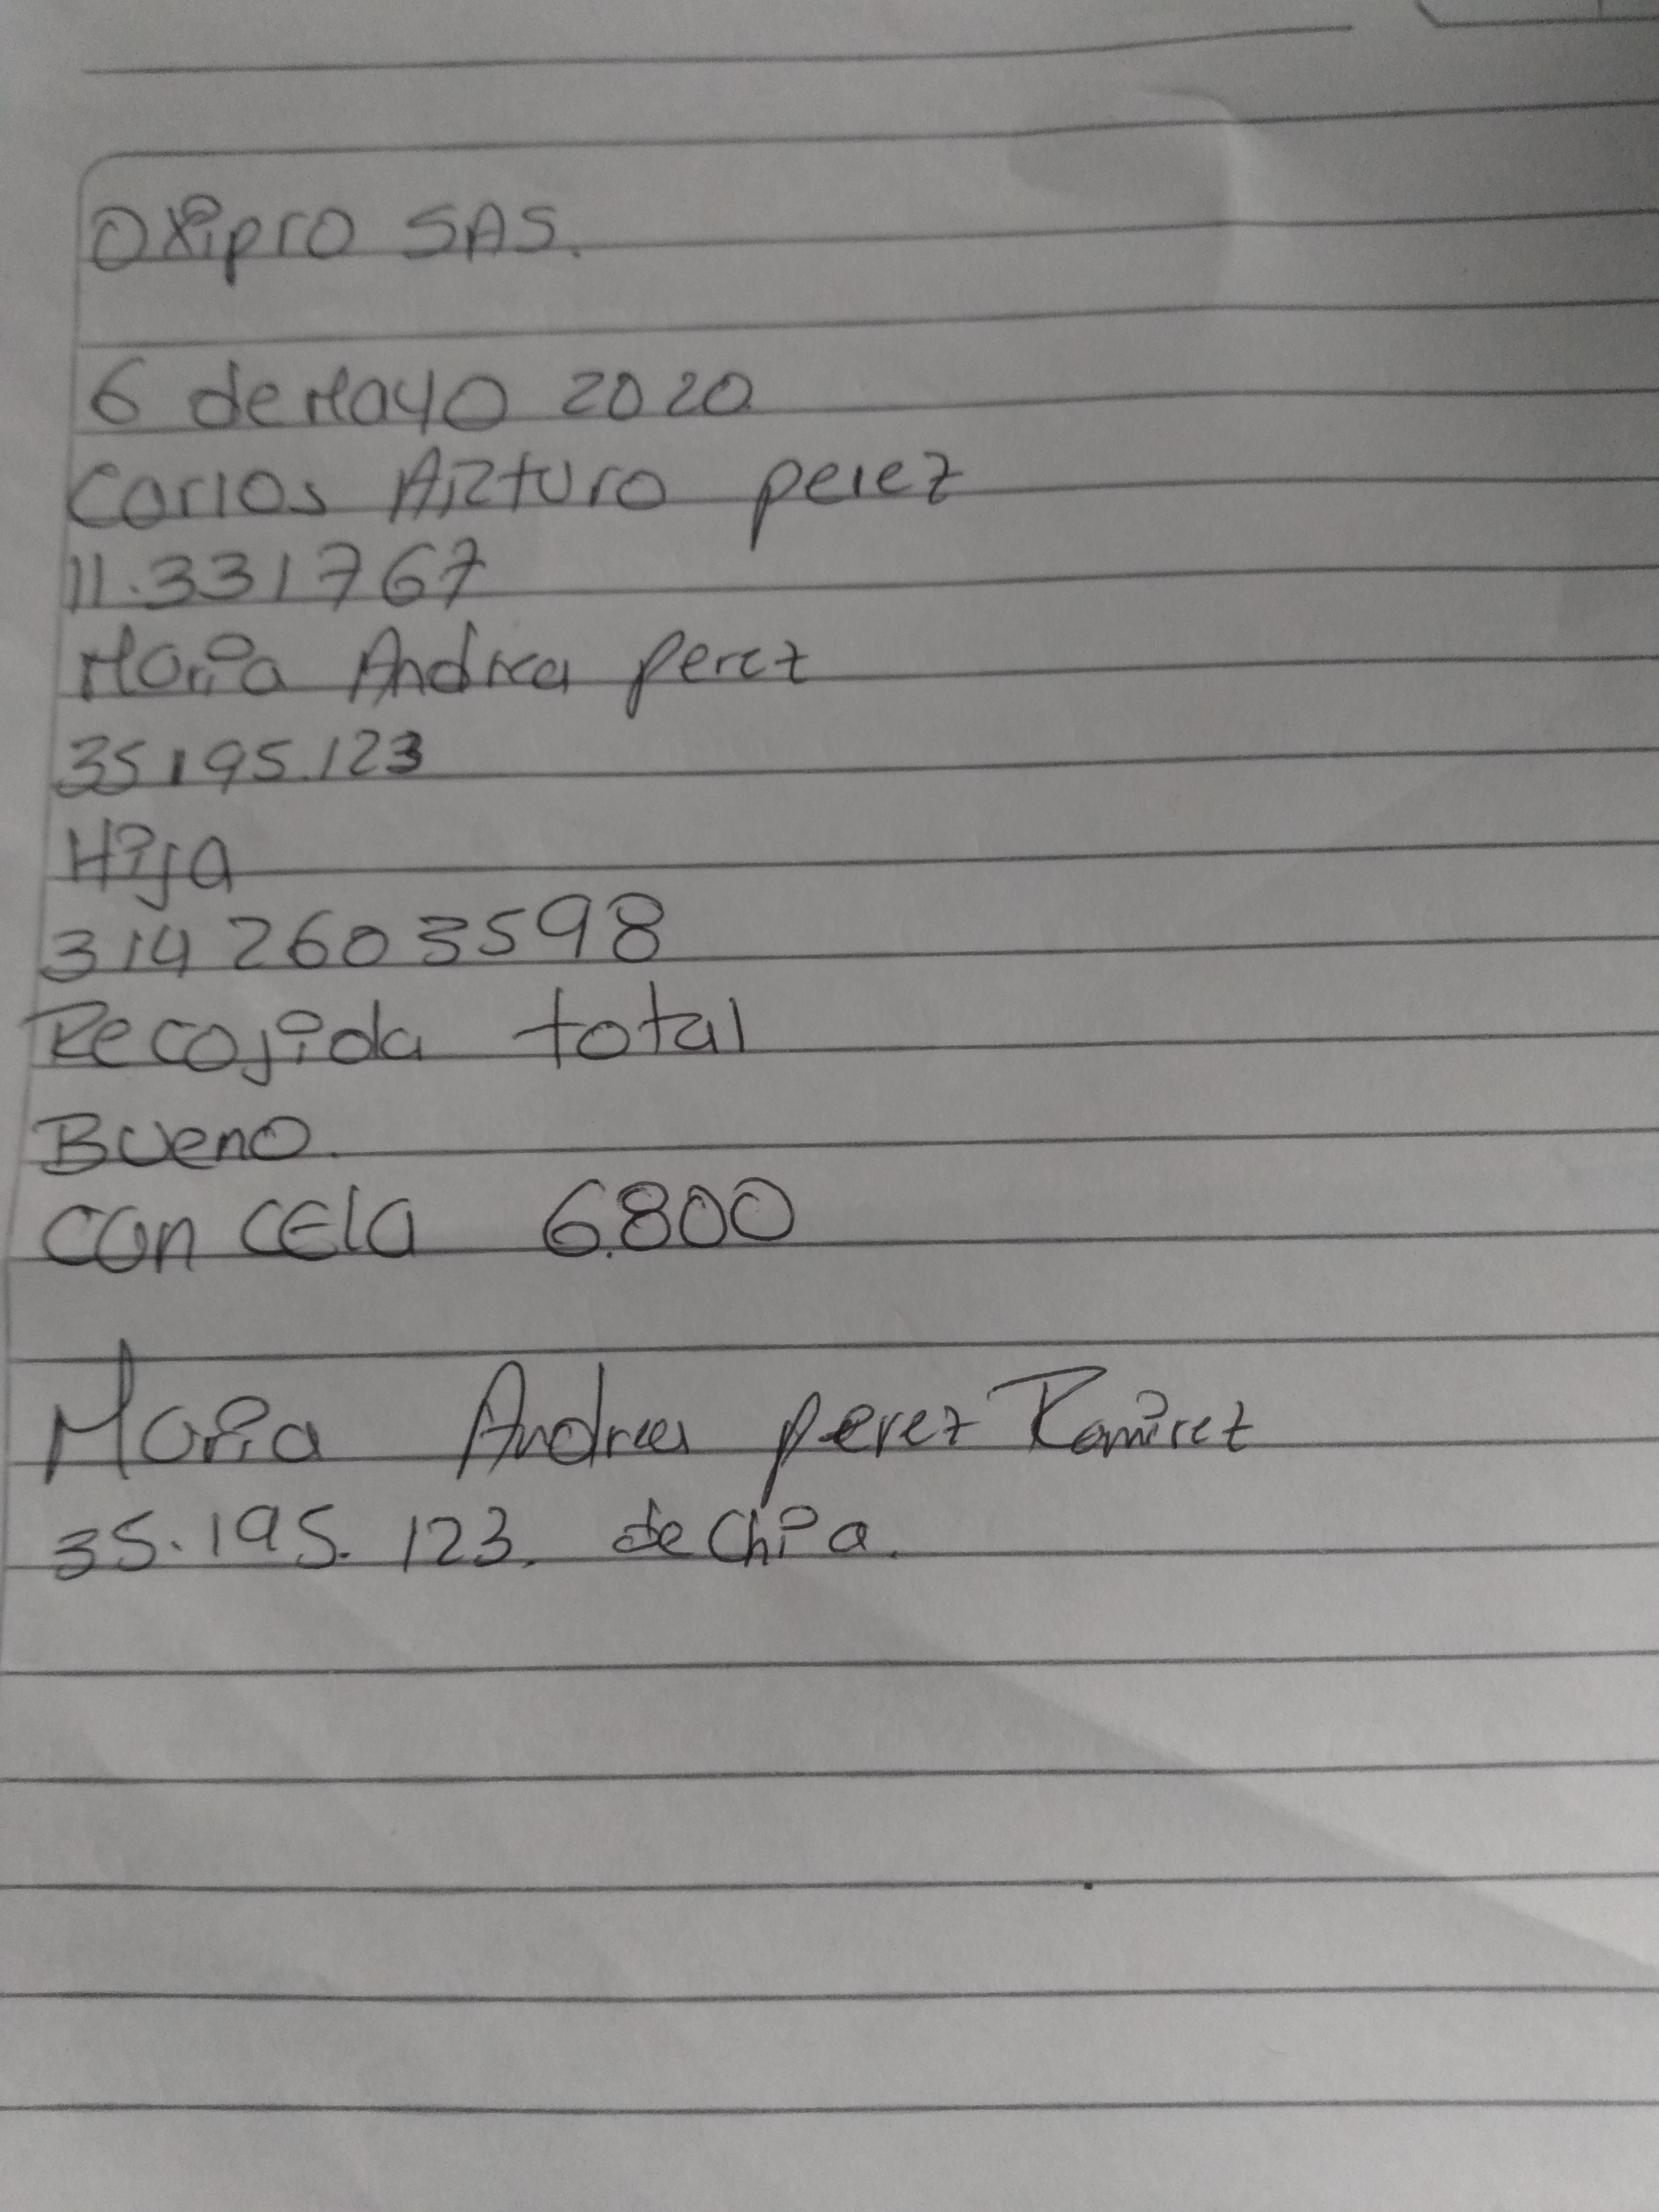 Oxipro SAS.
6 de Mayo 2020
Carlos Arturo perez
11.331767
Maria Andrea perez
35195.123
Hija
314 2603598
Recojida total
Bueno.
CAnCELA 6.800
Maria Andrea perez Ramirez
35.195.123. de Chia.